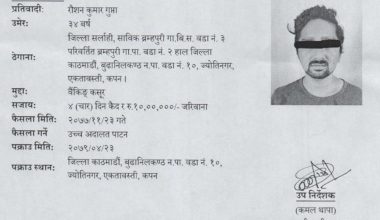 प्रतिवादीः रौशन कुमार गुप्ता
उमेरः ३४ बर्ष
जिल्ला सर्लाही, साविक ब्रम्हपुरी गा.बि.स. वडा नं. ३
परिवर्तित ब्रम्हपुरी गा.पा. वडा नं. २ हाल जिल्ला
ठेगानाः काठमाडौं, बुढानिलकण्ठ न.पा. वडा नं. १०, ज्योतिनगर,
एकताबस्ती, कपन ।
मुद्दाः बैंकिङ्ग कसूर
सजायः ४ (चार) दिन कैद र रु.१०,००,०००/- जरिवाना
फैसला मितिः २०७७/११/२३ गते
फैसला गर्ने उच्च अदालत पाटन
पक्राउ मितिः २०७९/०४/२३
पक्राउ स्थानः जिल्ला काठमाडौं, बुढानिलकण्ठ न.पा. वडा नं. १०,
ज्योतिनगर, एकताबस्ती, कपन
उप निर्देशक
(कमल थापा)